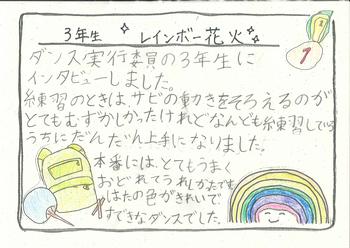 3年生 レインボー花火
1
ダンス実行委員の3年生に
インタビューしました。
練習のときは、サビの動きをそろえるのが
とてもむずかしかったけれどなんども練習している
うちにだんだん上手になりました。
本番には、とてもうまく
おどれてうれしかたです
はたの色がきれいで
すてきなダンスでした。